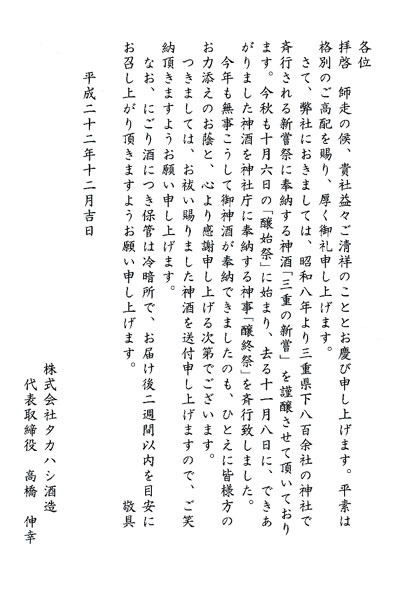 各位
拝啓　師走の候、貴社益々ご清祥のこととお慶び申し上げます。平素は
格別のご高配を賜り、厚く御礼申し上げます。
さて、弊社におきましては、昭和八年より三重県下八百余社の神社で
斉行される新嘗祭に奉納する神酒「三重の新嘗」を謹醸させて頂いており
ます。今秋も十月六日の「醸始祭」に始まり、去る十一月八日に、できあ
がりました神酒を神社庁に奉納する神事「醸終祭」を斉行致しました。
今年も無事こうして御神酒が奉納できましたのも、ひとえに皆様方の
お力添えのお陰と、心より感謝申し上げる次第でございます。
つきましては、お祓い賜りました神酒を送付申し上げますので、ご笑
納頂きますようお願い申し上げます。
なお、にごり酒につき保管は冷暗所で、お届け後二週間以内を目安に
お召し上がり頂きますようお願い申し上げます。
敬具
平成二十二年十二月吉日
株式会社タカハシ酒造
代表取締役　高橋　伸幸